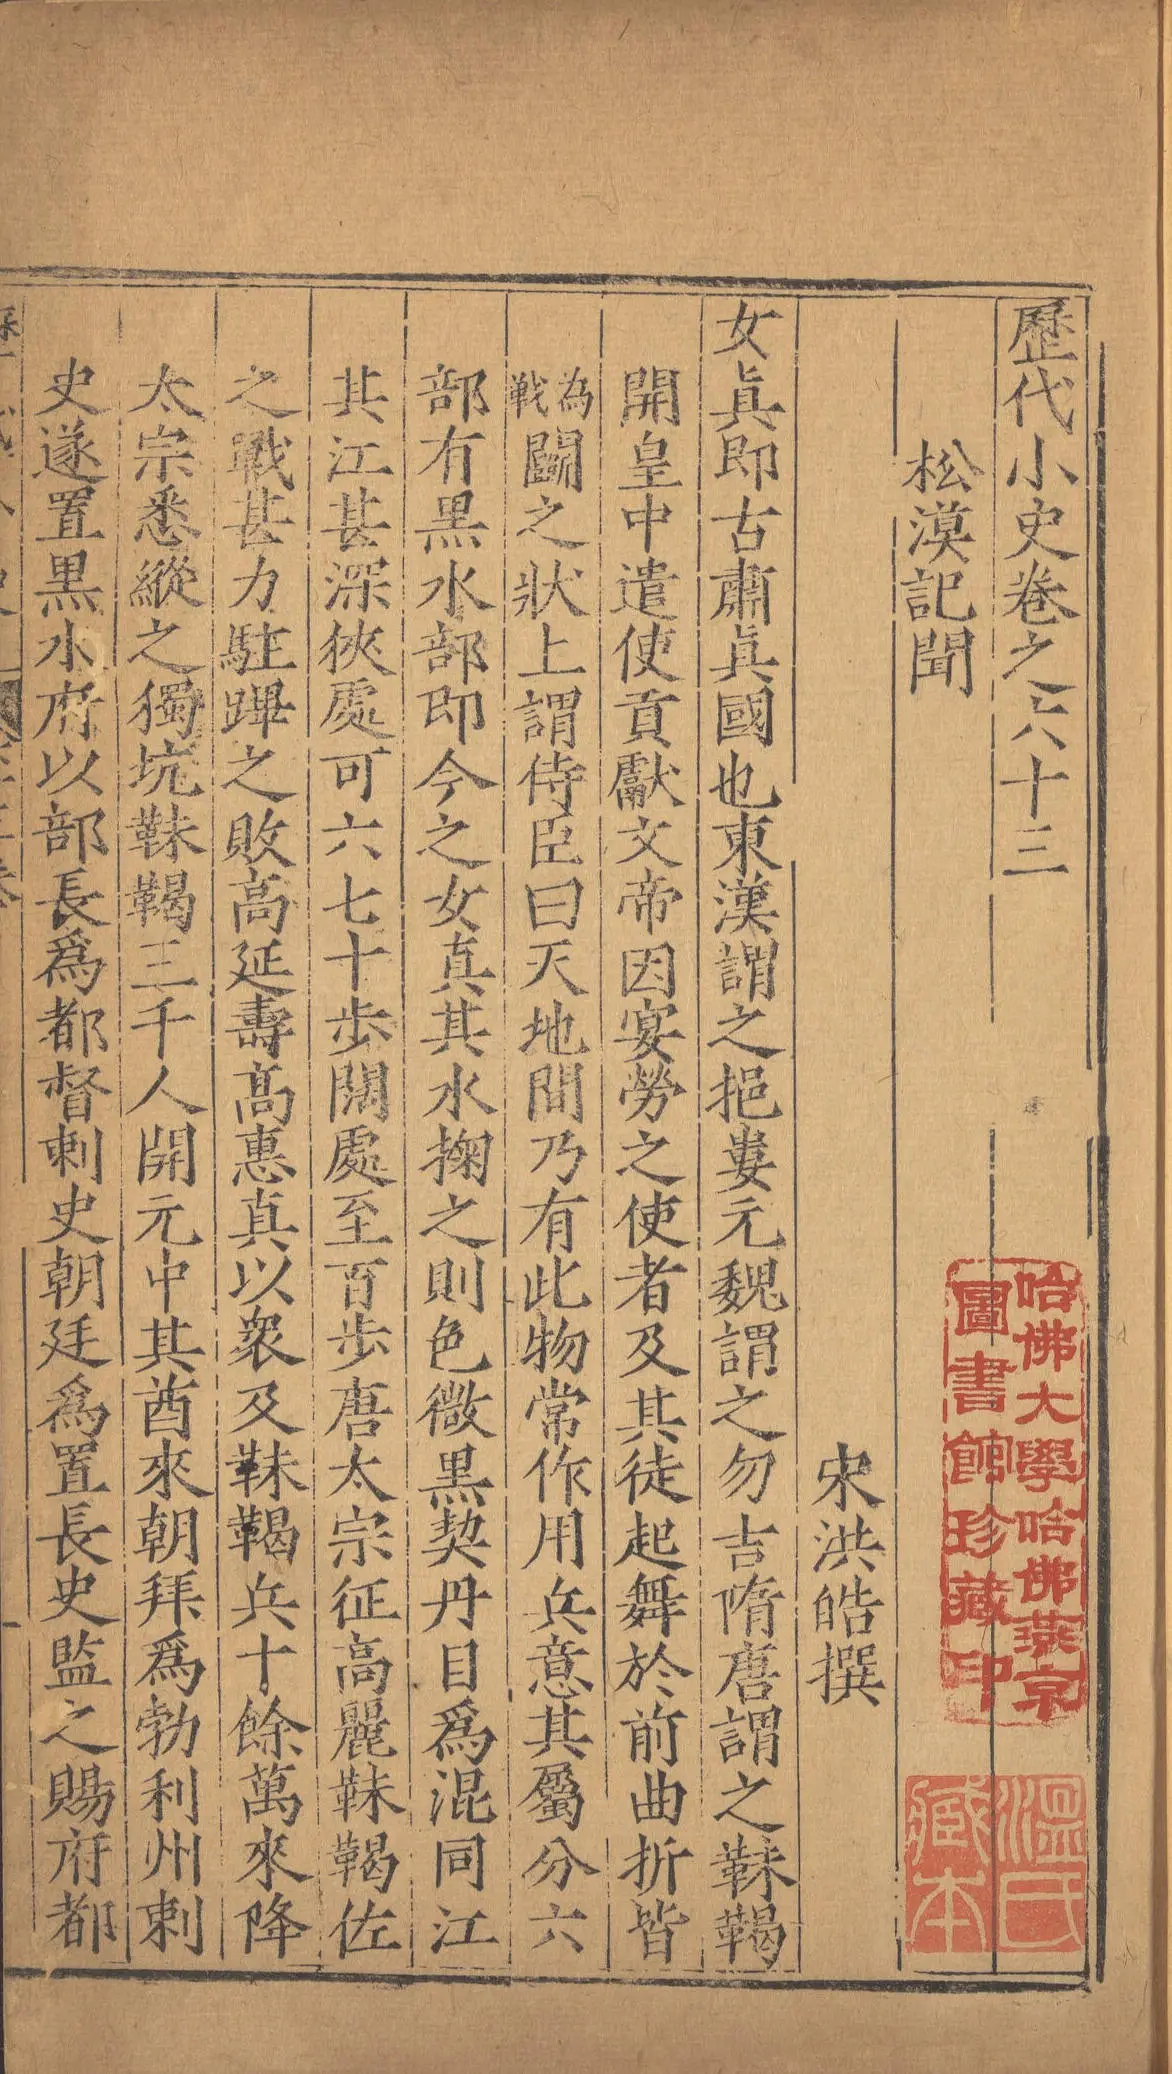 歷代小史卷之六十三
松漠記聞
宋洪皓撰
女眞即古肅眞國也東漢謂之挹婁元魏謂之勿吉隋唐謂之靺鞨
開皇中遣使貢獻文帝因宴勞之使者及其徒起舞於前曲折皆
為戦鬭之狀上謂侍臣曰天地間乃有此物常作用兵意其屬分六
部有黑水部即今之女真其水掬之則色微黑契丹目爲混同江
其江甚深狹處可六七十步闊處至百步唐太宗征高麗靺鞨佐
之戰甚力駐蹕之敗高延壽高惠真以衆及靺鞨兵十餘萬來降
太宗悉縱之獨坑靺鞨三千人開元中其酋來朝拜爲勃利州刺
史遂置黑水府以部長爲都督刺史朝廷爲置長史監之賜府都
哈佛大學哈佛燕京
圖書館珍藏印
溫氏
藏本